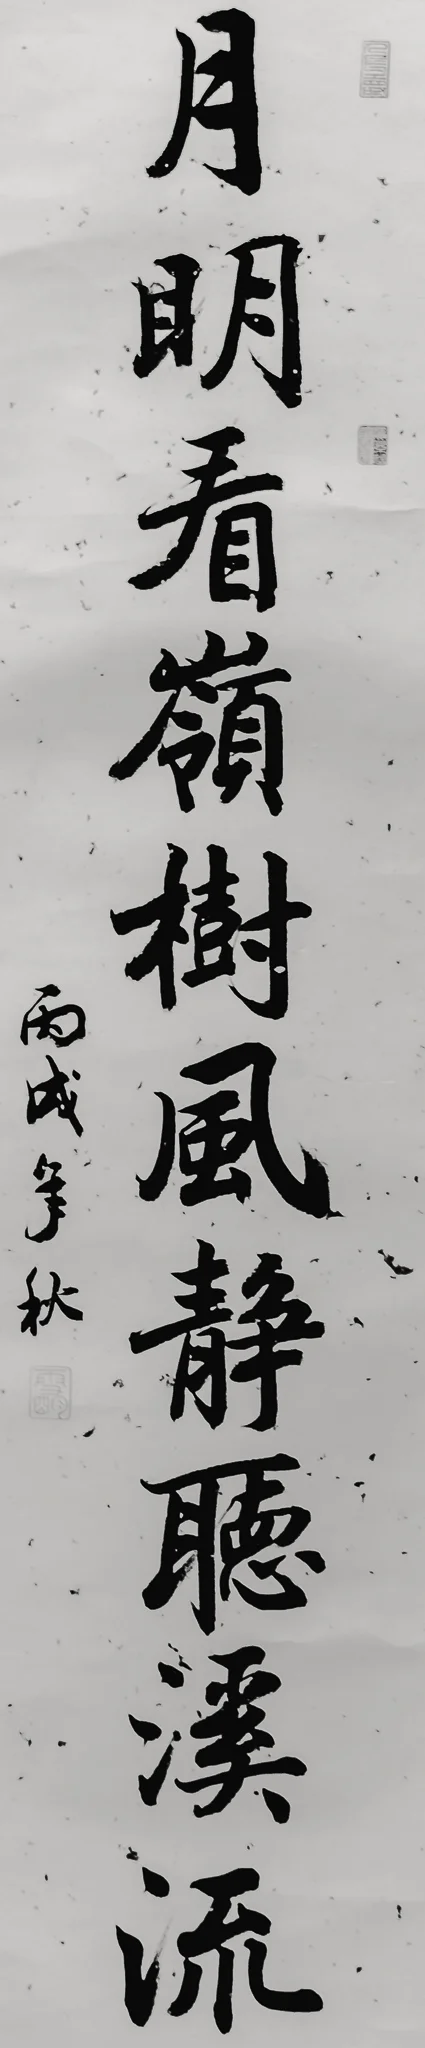 月明看嶺樹風靜聽溪流
丙戌年秋